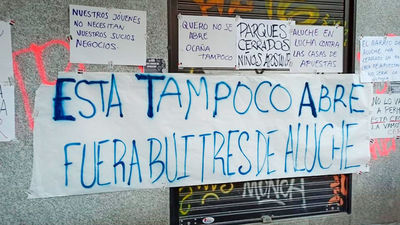 NUESTROS JÓVENES
NO NECESITAN
VUESTROS SUCIOS
NEGOCIOS.
QUERO NO SE
ABRE
OCAÑA
TAMPOCO
PARQUES
CERRADOS
NIÑOS
ALUCHE EN
LUCHA CONTRA
LAS CASAS DE
APUESTAS
EL BARRIO DE
ESTA TAMPOCO ABRE
FUERA BUITRES DE ALUCHE
NO LO
A